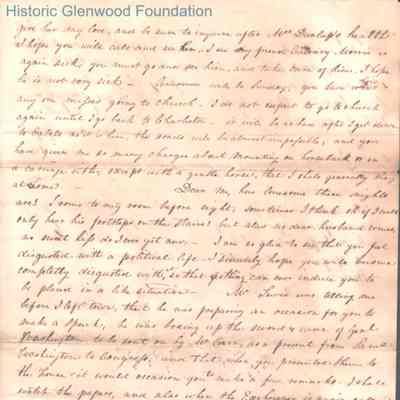 Historic Glenwood Foundation
give her my love, and be sure to inquire after Mrs Dunlap's health
I hope you will call and see her, I see my friend Commy Morris is
again sick, you must go and see him, and take care of him. I hope
he is not very sick — Tomorrow will be Sunday, you know what
any one misses going to church. I do not expect to go to church
again until I go back to Charleston. it will be when after I get down
to as it is then, the roads will be almost impassable, and you
have given me so many charges about mounting on horseback or in
a carriage either, except with a gentle horse, that I shall generally stay
at home? — Dear M, how lonesome these nights
are? I come to my room before eight, sometimes I think oh if I could
only hear his footsteps on the stairs! but alas no dear husband comes,
no sweet kiss do I ever get now,— I am so glad to see that you feel
disgusted with a political life. I sincerely hope you will become
completely disgusted with, so that nothing can ever induce you to
be placed in a like situation— Mr Lewis was telling me
before I left town, that he was preparing an occasion for you to
make a speech; he was boxing up the sword & cane of Genl
Washington to be sent on by Mr as a present from
Washington to Congress; and that when you presented them to
the house it would occasion you to make a few remarks. I shall
watch the papers, and also when the